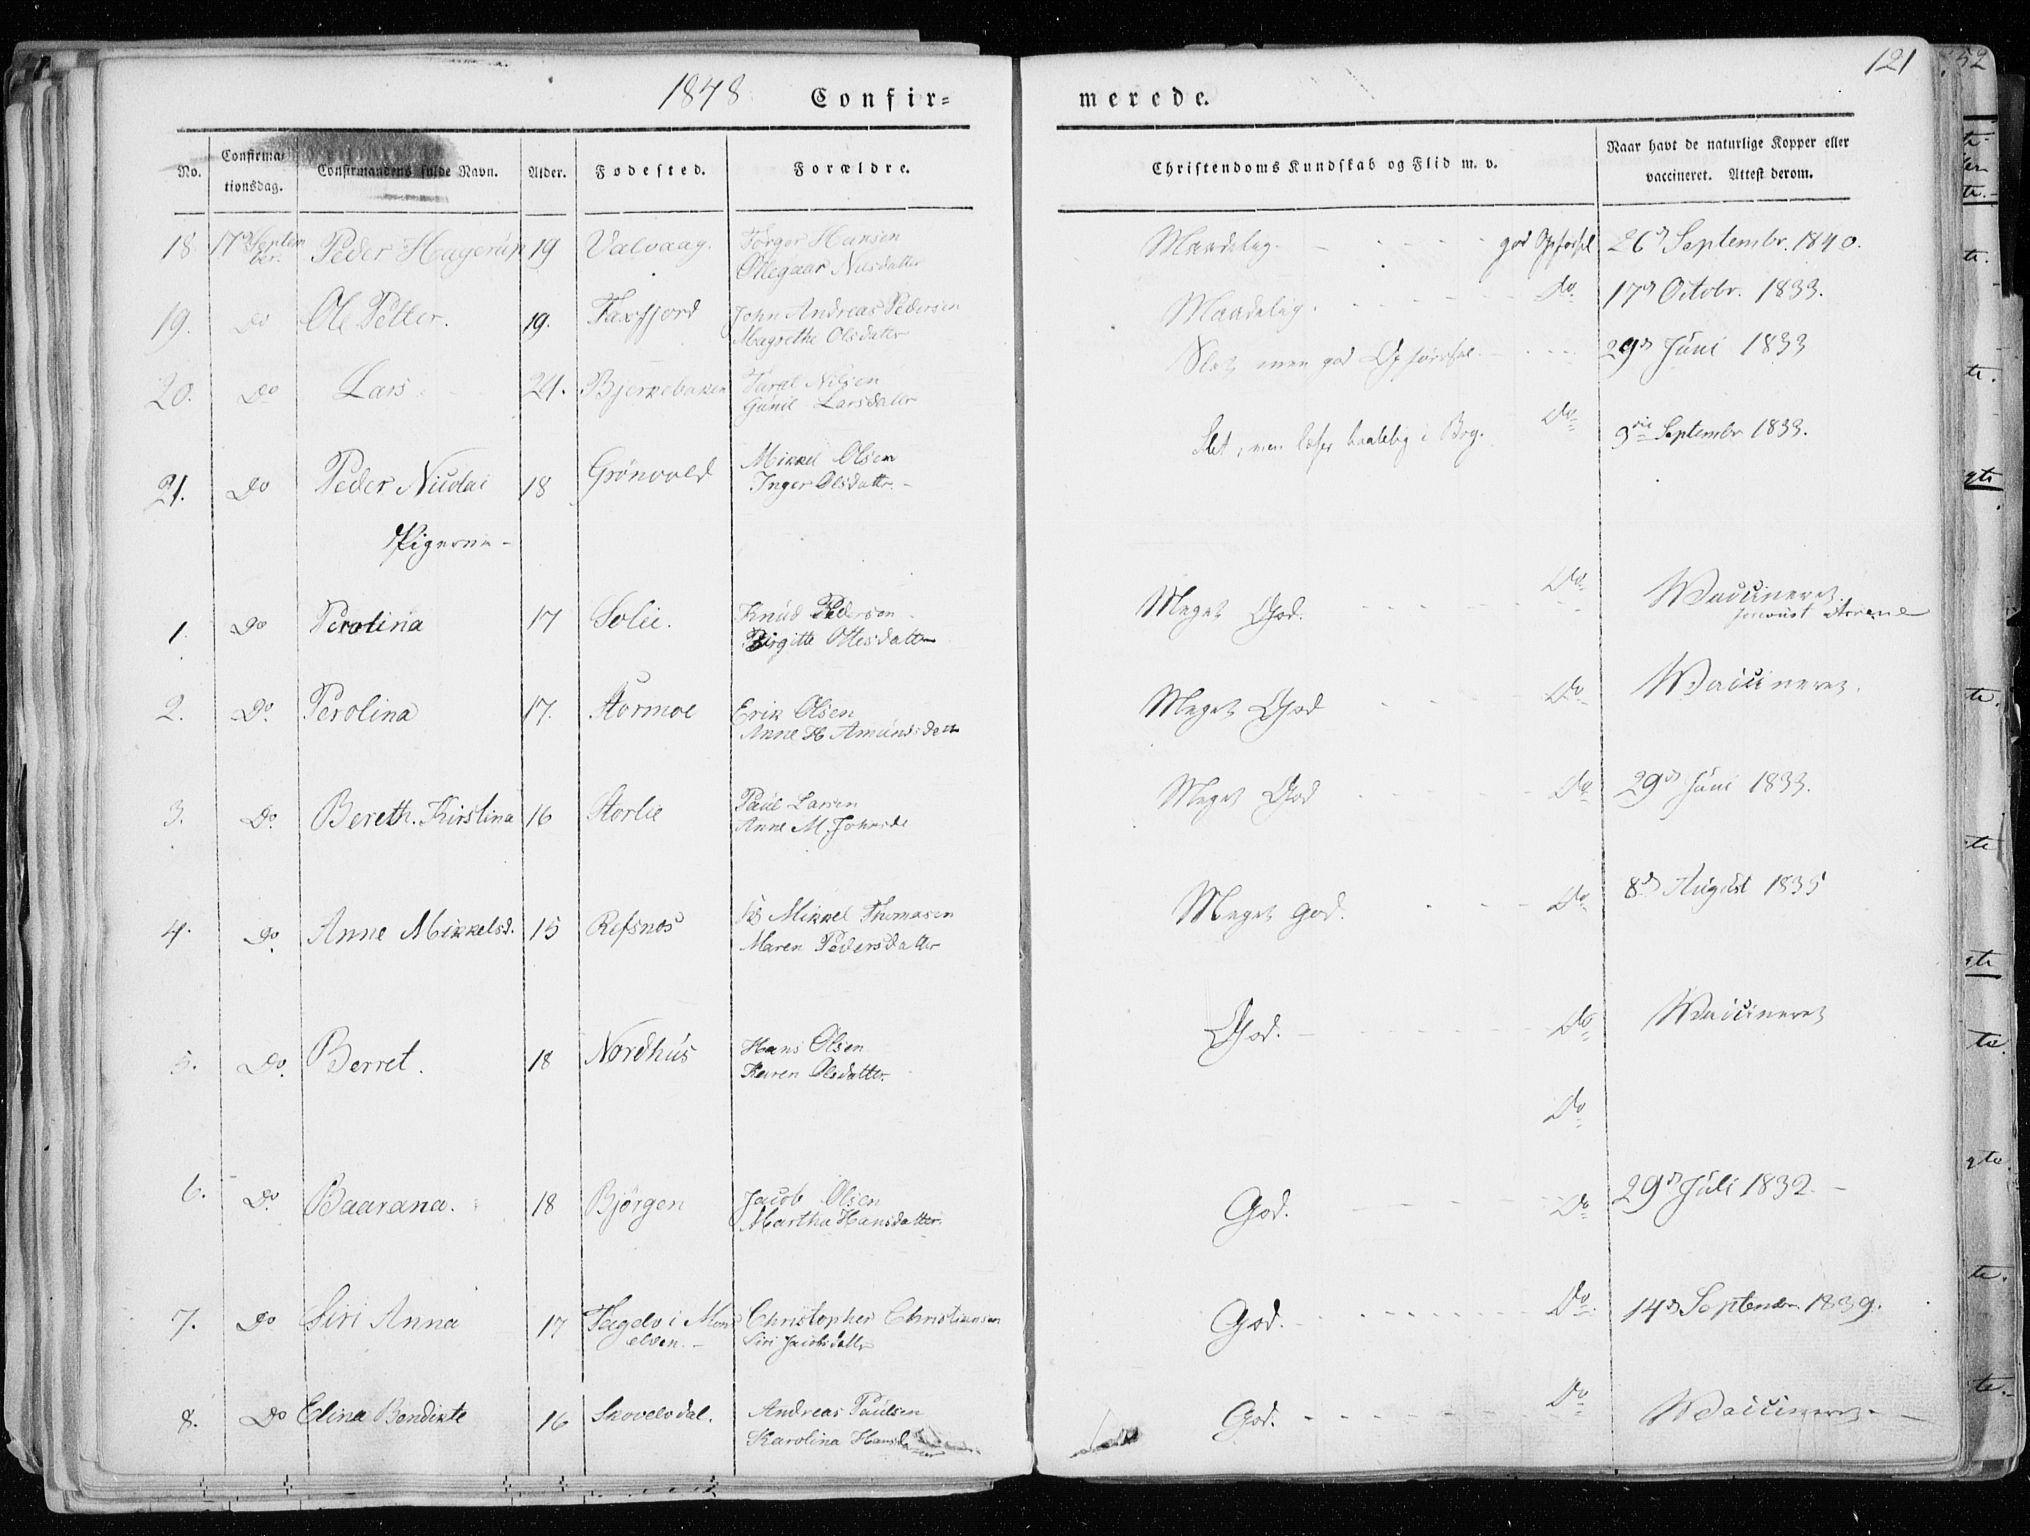 1848 Confir= merede. 121
No. Confirma= tionsdag. Confirmandens fulde Navn. Alder. Fødested. Forældre. Christendoms Kundskab og Flid m. v. Naar havt de naturlige Kopper eller vaccineret. Attest derom.
18 17de Septem Peder Hagerup 19 Valvaag. Jørger Hansen Maadelig. god Opførsel 26d Septembr. 1840.
ber. Ollegaar Nilsdatter
19. Do Ole Petter. 19. Faxfjord John Andreas Pedersen Maadelig. Do. 17d Octobr. 1833.
Magrethe Olsdatter
20. Do Lars 21. Bjerkebaken Taral Nilsen Slet men god Opførsel. 29d Juni 1833
Gunil Larsdatter
21. Do Peder Nicolai 18 Grönvold Mikkel Olsen Slet, men læser taalelig i Bog. Do 3die Septembr 1833.
Inger Olsdattr.
Pigerne
1. Do Perolina 17 Solie. Knud Pedersen Meget God. Do Vaccineret
Birgitte Ottesdatter
2. Do. Perolina 17. Stormoe Erik Olsen Meget God Do Vaccineret.
Anne H Amundsdatt
3. Do. Bereth. Kirstina 16 Storlie Paul Larsen Meget God Do 29d Juni 1833.
Anne M. Johnsde
4. Do. Anne Mikkelsd. 15 Refsnæs Mikkel Thomasen Meget god. Do 8d August 1835
Maren Pedersdatter
5. Do. Berret. 18 Nordhús Hans Olsen God. Do Vaccineret
Karen Olsdatter.
Do
6. Do. Baarana. 18 Bjørgen Jacob Olsen God. Do 29d Juli 1832.
Martha Hansdatter.
7. Do Siri Anna 17 Fagelv i Mons Christopher Christiansen God. Do. 14d Septembr. 1839.
elven. Siri Jacobsdattr
8. Do Elina Bendikte 16 Skovelvdal. Andreas Paulsen God. Do Vaccineret.
Karolina Hansda